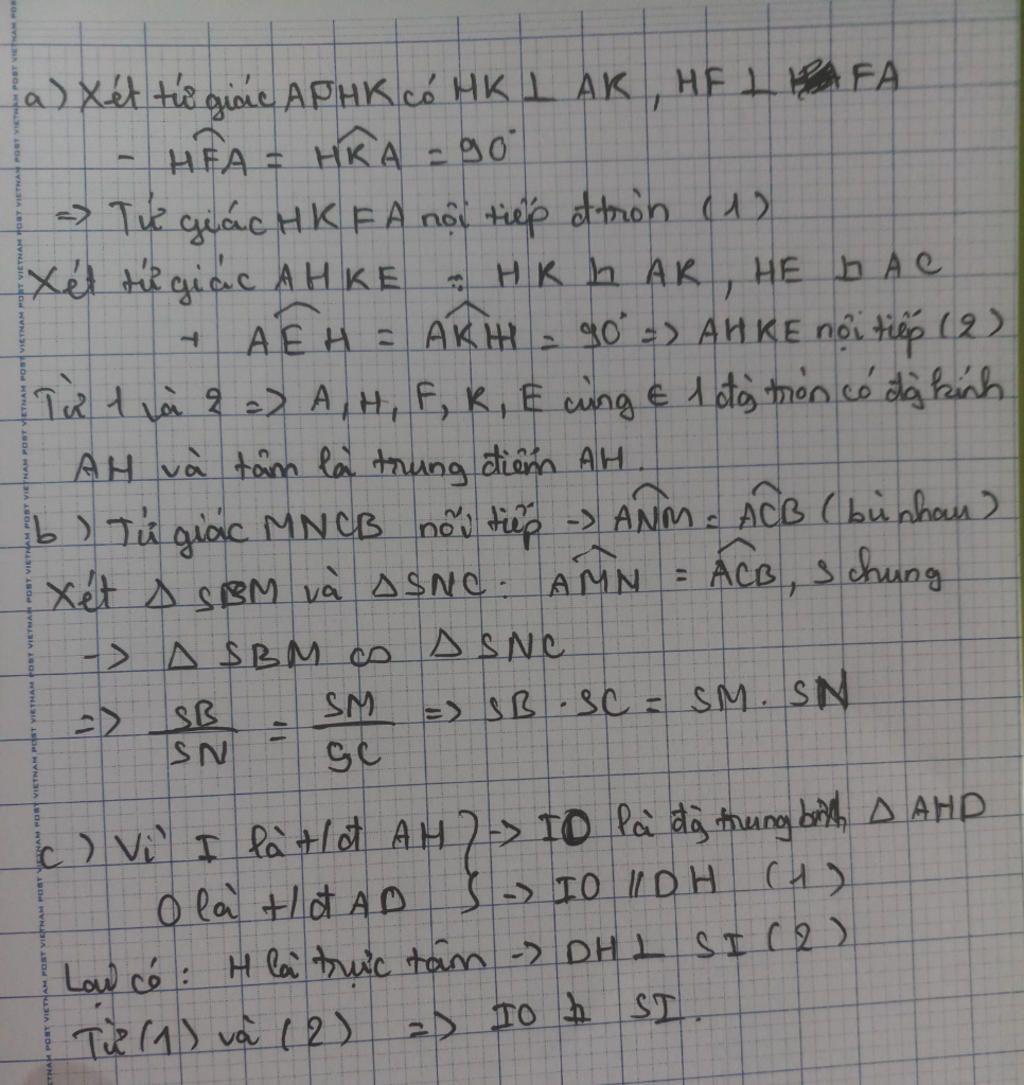 a) Xét tứ giác AFHK có HK ⊥ AK, HF ⊥ FA
- HFA = HKA = 90°
=> Tứ giác HKFA nội tiếp đtròn (1)
Xét tứ giác AHKE : HK ⊥ AK, HE ⊥ AC
+ AEH = AKH = 90° => AHKE nội tiếp (2)
Từ 1 và 2 => A, H, F, K, E cùng ∈ 1 đg tròn có đg kính
AH và tâm là trung điểm AH.
b) Tứ giác MNCB nối tiếp -> ANM = ACB (bù nhau)
Xét Δ SBM và Δ SNC : AMN = ACB, S chung
-> Δ SBM ∽ Δ SNC
=> SB/SN = SM/SC => SB . SC = SM . SN
c) Vì I là t/đ AH } -> IO là đg trung bình Δ AHD
O là t/đ AD } -> IO // DH (1)
Lại có : H là trực tâm -> DH ⊥ SI (2)
Từ (1) và (2) => IO ⊥ SI.
VIETNAM POST VIETNAM POST VIETNAM POST VIETNAM POST VIETNAM POST